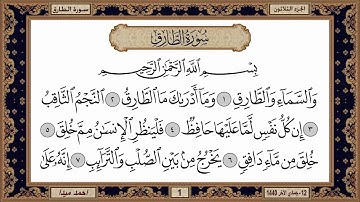 سورة الطارق
الجزء الثلاثون
سُورَةُ الطَّارِقِ
بِسْمِ اللَّهِ الرَّحْمَٰنِ الرَّحِيمِ
وَالسَّمَآءِ وَالطَّارِقِ ١ وَمَآ أَدْرَىٰكَ مَا الطَّارِقُ ٢ النَّجْمُ الثَّاقِبُ
٣ إِن كُلُّ نَفْسٍ لَّمَّا عَلَيْهَا حَافِظٌ ٤ فَلْيَنظُرِ الْإِنسَٰنُ مِمَّ خُلِقَ ٥
خُلِقَ مِن مَّآءٍ دَافِقٍ ٦ يَخْرُجُ مِنۢ بَيْنِ الصُّلْبِ وَالتَّرَآئِبِ ٧ إِنَّهُۥ عَلَىٰ
احمد ميلا
1
1440